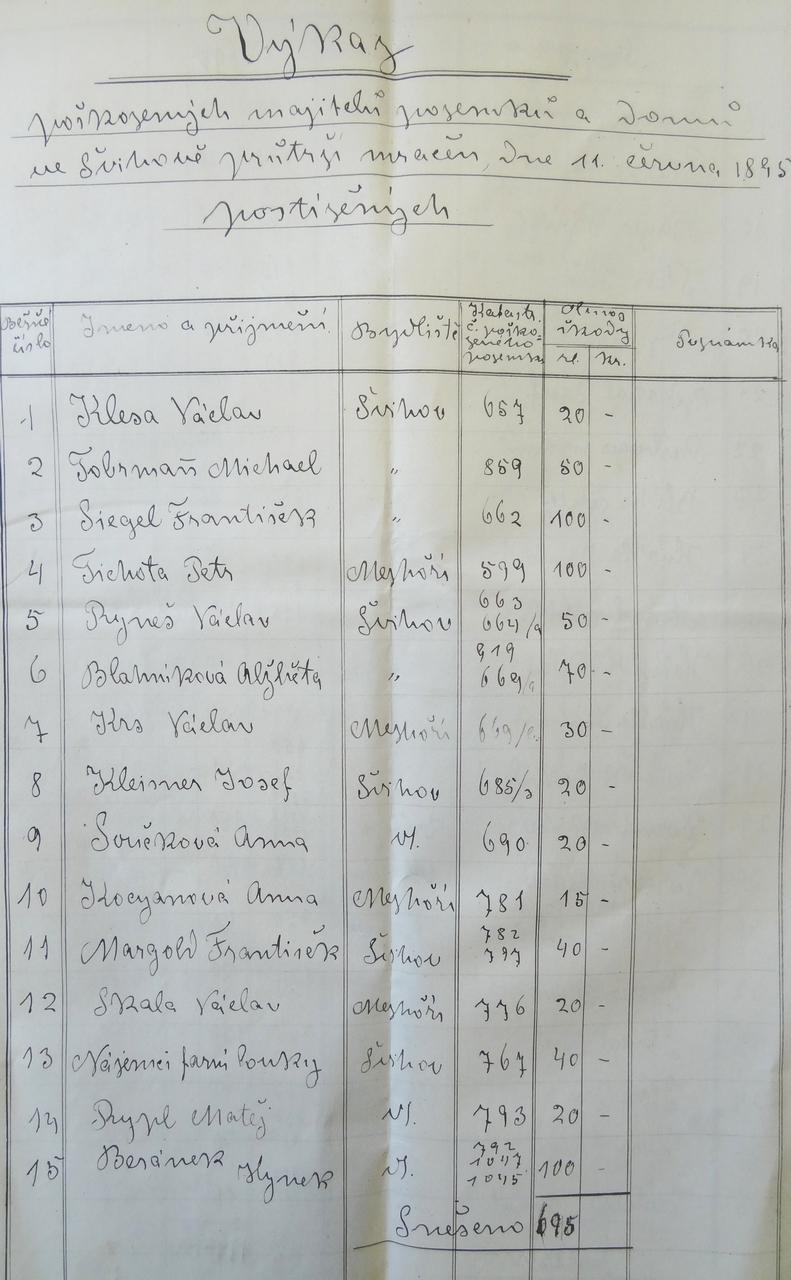 Výkaz
poškozených majitelů pozemků a domů
ve Švihově průtrží mračen, dne 11. června 1895
postižených
Běžné číslo Jmeno a příjmení Bydliště Katastr. č. poško- zeného pozemku Obnos škody zl. kr. Poznámka
1 Klesa Václav Švihov 657 20 -
2 Michael " 859 50 -
3 Siegel František " 662 100 -
4 Tichota Petr Mezhoří 599 100 -
5 Ryneš Václav Švihov 663 664/a 50 -
6 Blahníková Alžběta " 919 669/a 70 -
7 Krs Václav Mezhoří 30 -
8 Kleisner Josef Švihov 685/2 20 -
9 Součková Anna Vl. 690 20 -
10 Kocyanová Anna Mezhoří 781 15 -
11 Margold František Švihov 782 797 40 -
12 Skala Václav Mezhoří 776 20 -
13 Nájemci farní louky Švihov 767 40 -
14 Rypl Matěj Vl. 793 20 -
15 Beránek Hynek Vl. 792 1047 1045 100 -
Snešeno 695